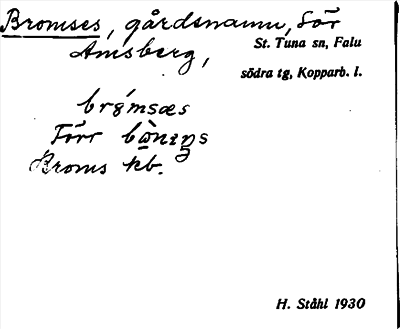 Bromses, gårdsnamn, Sör
Amsberg,
St. Tuna sn, Falu
södra tg, Kopparb. l.
brómsæs
Förr
Broms kb.
H. Ståhl 1930